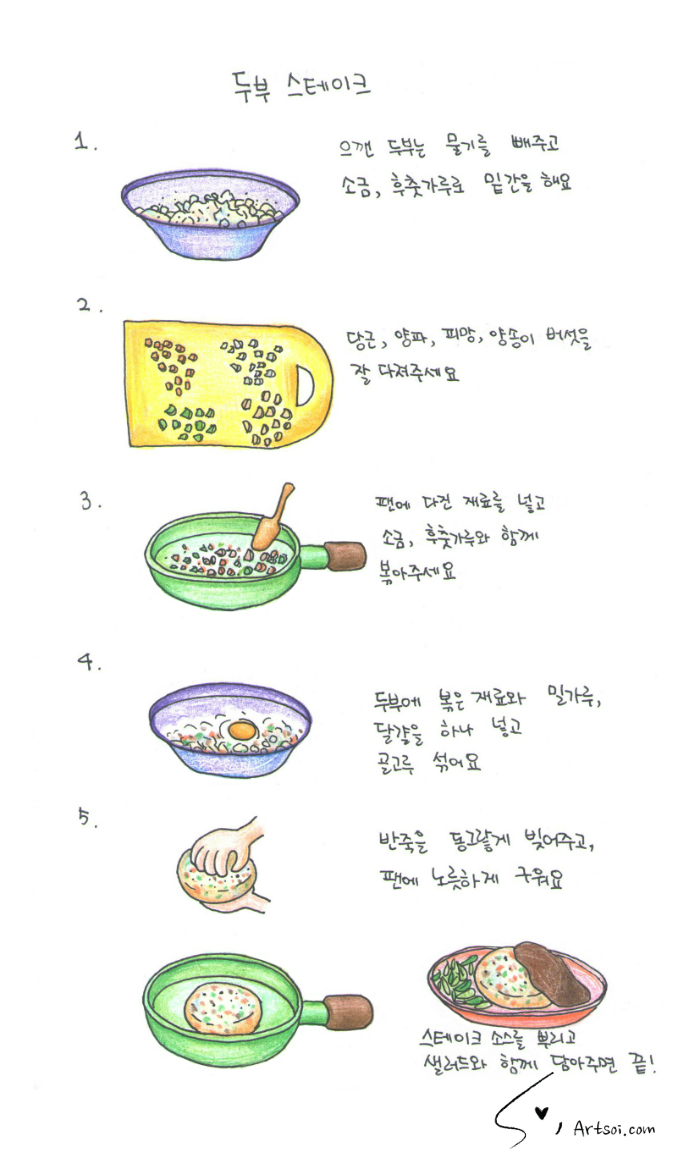 두부 스테이크
1.
으깬 두부는 물기를 빼주고
소금, 후춧가루로 밑간을 해요
2.
당근, 양파, 피망, 양송이 버섯을
잘 다져주세요
3.
팬에 다진 재료를 넣고
소금, 후춧가루와 함께
볶아주세요
4.
두부에 볶은 재료와 밀가루,
달걀을 하나 넣고
골고루 섞어요
5.
반죽을 동그랗게 빚어주고,
팬에 노릇하게 구워요
스테이크 소스를 뿌리고
샐러드와 함께 담아주면 끝!
Artsoi.com